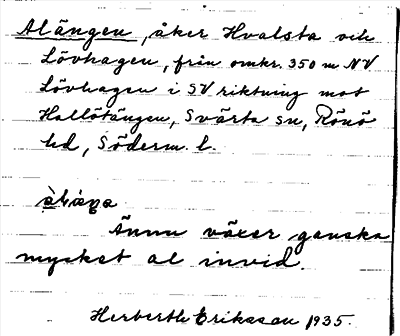 Alängen, åker Hvalsta och
Lövhagen, från omkr. 350 m NV
Lövhagen i SV riktning mot
Hallötången, Svärta sn, Rönö
hd, Söderm. l.
Ännu växer ganska
mycket al invid.
Herberth Eriksson 1935.